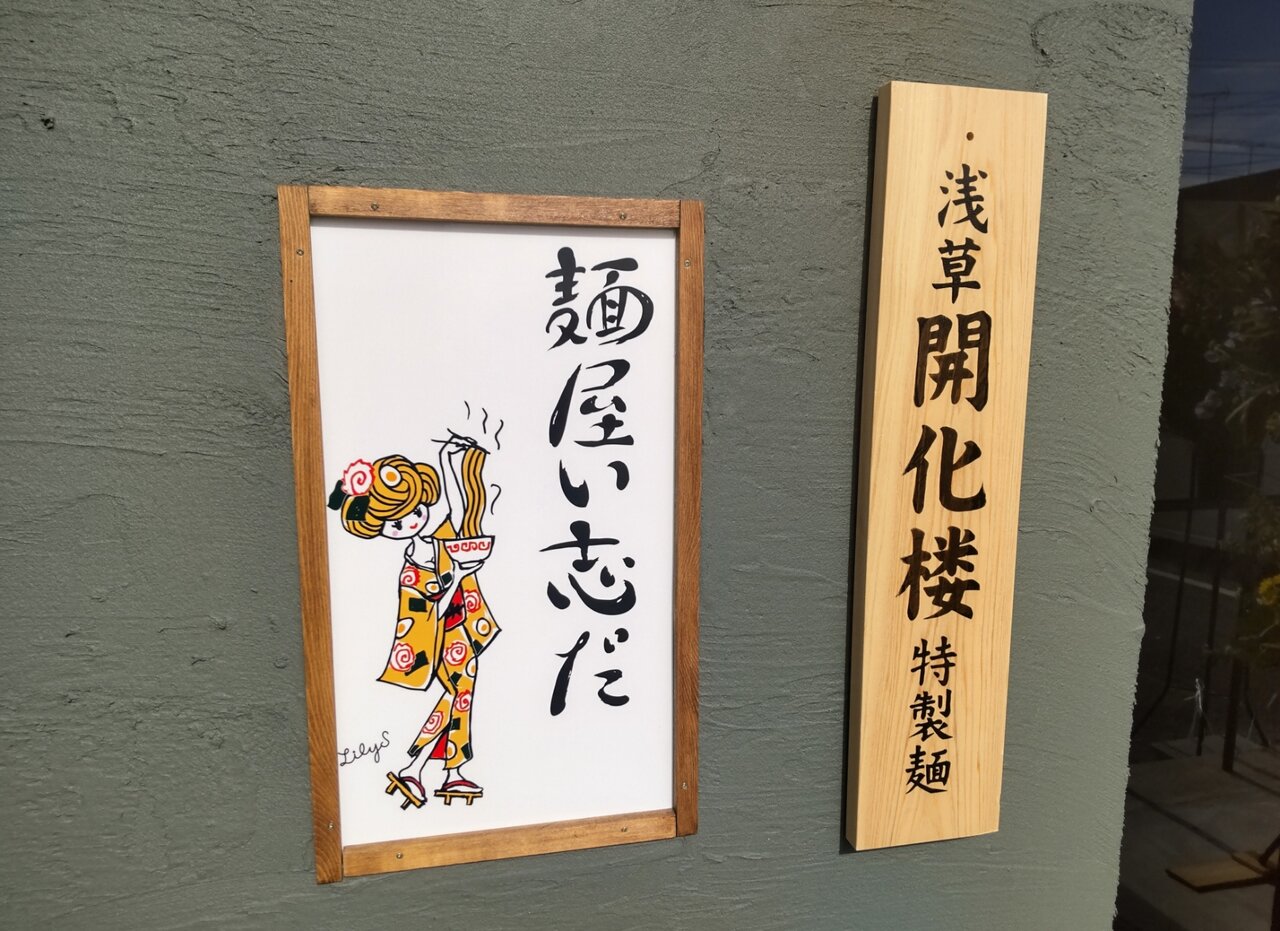 麺屋い志だ
LilyS
浅草開化楼特製麺